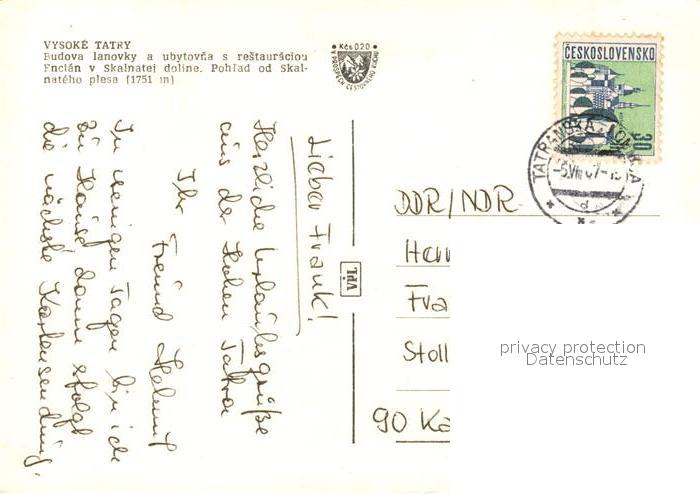 VYSOKÉ TATRY
Budova lanovky a ubytovňa s reštauráciou
Encián v Skalnatej doline. Pohľad od Skal-
natého plesa (1751 m)
Kčs 0,20
ČESKOSLOVENSKO
30
TATRANSKÁ LOMNICA
-5.VIII.67-15
d
Lieber Frank!
Herzliche Urlaubsgrüße
aus der Hohen Tatra
Ihr
Freund Helmut
In wenigen Tagen bin ich
zu Hause dann erfolgt
die nächste Kartensendung.
Tvt
DDR/NDR
Fra
Stoll
90 Ka
privacy protection
Datenschutz